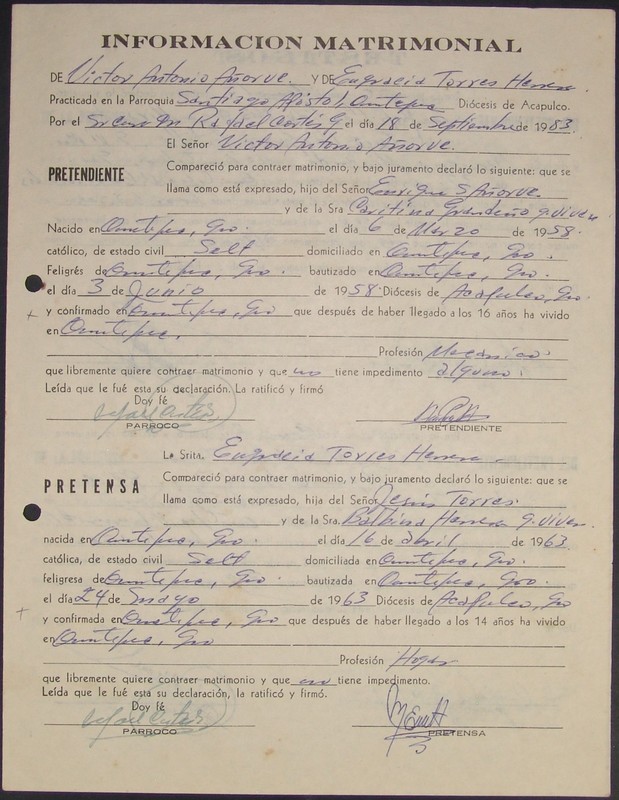 INFORMACION MATRIMONIAL
DE Victor Antonio Añorve. Y DE Eugracia Torres Herrera
Practicada en la Parroquia Santiago Apóstol, Ometepec Diócesis de Acapulco.
Por el Sr. Cura Rafael Cortés G. el día 18 de Septiembre de 1983.
El Señor Victor Antonio Añorve.
PRETENDIENTE
Compareció para contraer matrimonio, y bajo juramento declaró lo siguiente: que se
llama como está expresado, hijo del Señor Enrique S Añorve.
y de la Sra q. viven
Nacido en Ometepec, Gro. el día 6 de Marzo de 1958.
católico, de estado civil Solt domiciliado en Ometepec, Gro.
Feligrés de Ometepec, Gro. bautizado en Ometepec, Gro.
el día 3 de Junio de 1958. Diócesis de Acapulco, Gro.
y confirmado en Ometepec, Gro que después de haber llegado a los 16 años ha vivido
en Ometepec.
Profesión Mecánico.
que libremente quiere contraer matrimonio y que no tiene impedimento alguno.
Leída que le fué esta su declaración. La ratificó y firmó
Doy fé
Rafael Cortés
PARROCO PRETENDIENTE
La Srita. Eugracia Torres Herrera
PRETENSA
Compareció para contraer matrimonio, y bajo juramento declaró lo siguiente: que se
llama como está expresado, hija del Señor Jesús Torres.
y de la Sra. Balbina Herrera q. viven.
nacida en Ometepec, Gro. el día 16 de abril de 1963
católica, de estado civil Solt domiciliada en Ometepec, Gro.
feligresa de Ometepec, Gro. bautizada en Ometepec, Gro.
el día 24 de mayo de 1963 Diócesis de Acapulco, Gro
y confirmada en Ometepec, Gro que después de haber llegado a los 14 años ha vivido
en Ometepec, Gro
Profesión Hogar
que libremente quiere contraer matrimonio y que no tiene impedimento.
Leída que le fué esta su declaración, la ratificó y firmó.
Doy fé
Rafael Cortés
PARROCO PRETENSA